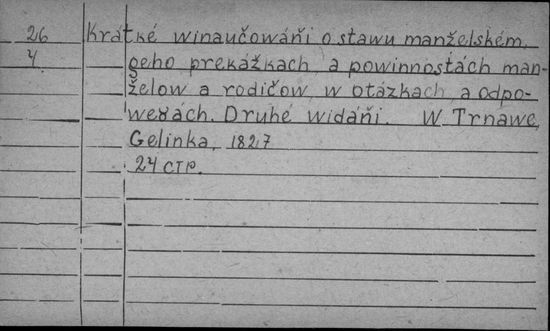 26 Krátké winaučowáňi o stawu manželském,
4 geho prekážkach, a powinnostách man-
želow a rodičow, w otázkach, a odpo-
weďách. Druhé widáňi. W Trnawe,
Gelinka, 1827
24 стр.